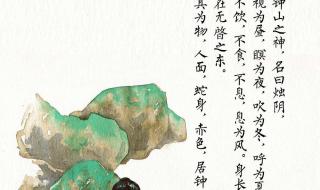 钟山之神，名曰烛阴，
视为昼，瞑为夜，吹为冬，呼为夏
不饮，不食，不息，息为风。身长
在无䏿之东。
其为物，人面，蛇身，赤色，居钟